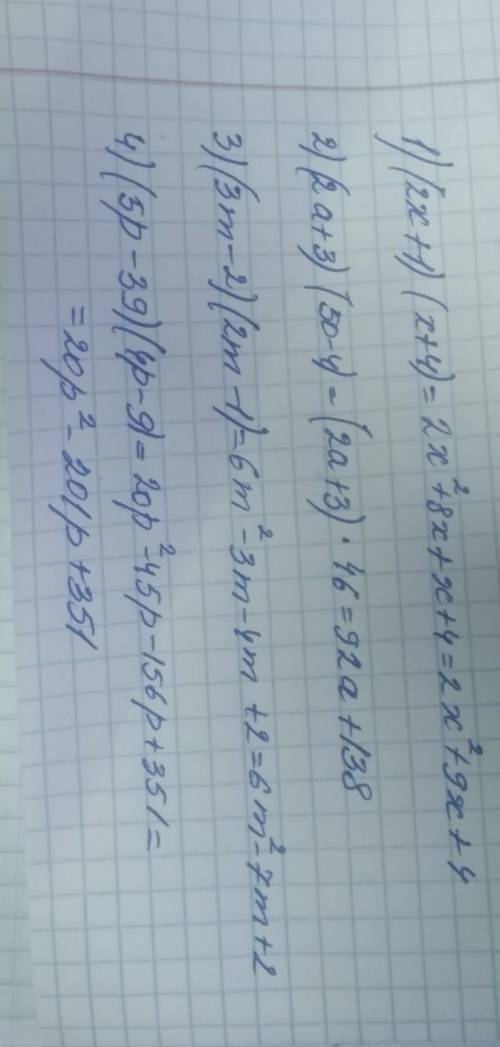 1) (2x+1) (x+4) = 2x²+8x+x+4=2x²+9x+4
2) (2a+3) (50-4) = (2a+3) · 46 = 92a+138
3) (3m-2) (2m-1)=6m²-3m-4m+2=6m²-7m+2
4) (5p-39)(4p-9)=20p²-45p-156p+351=
=20p²-201p+351